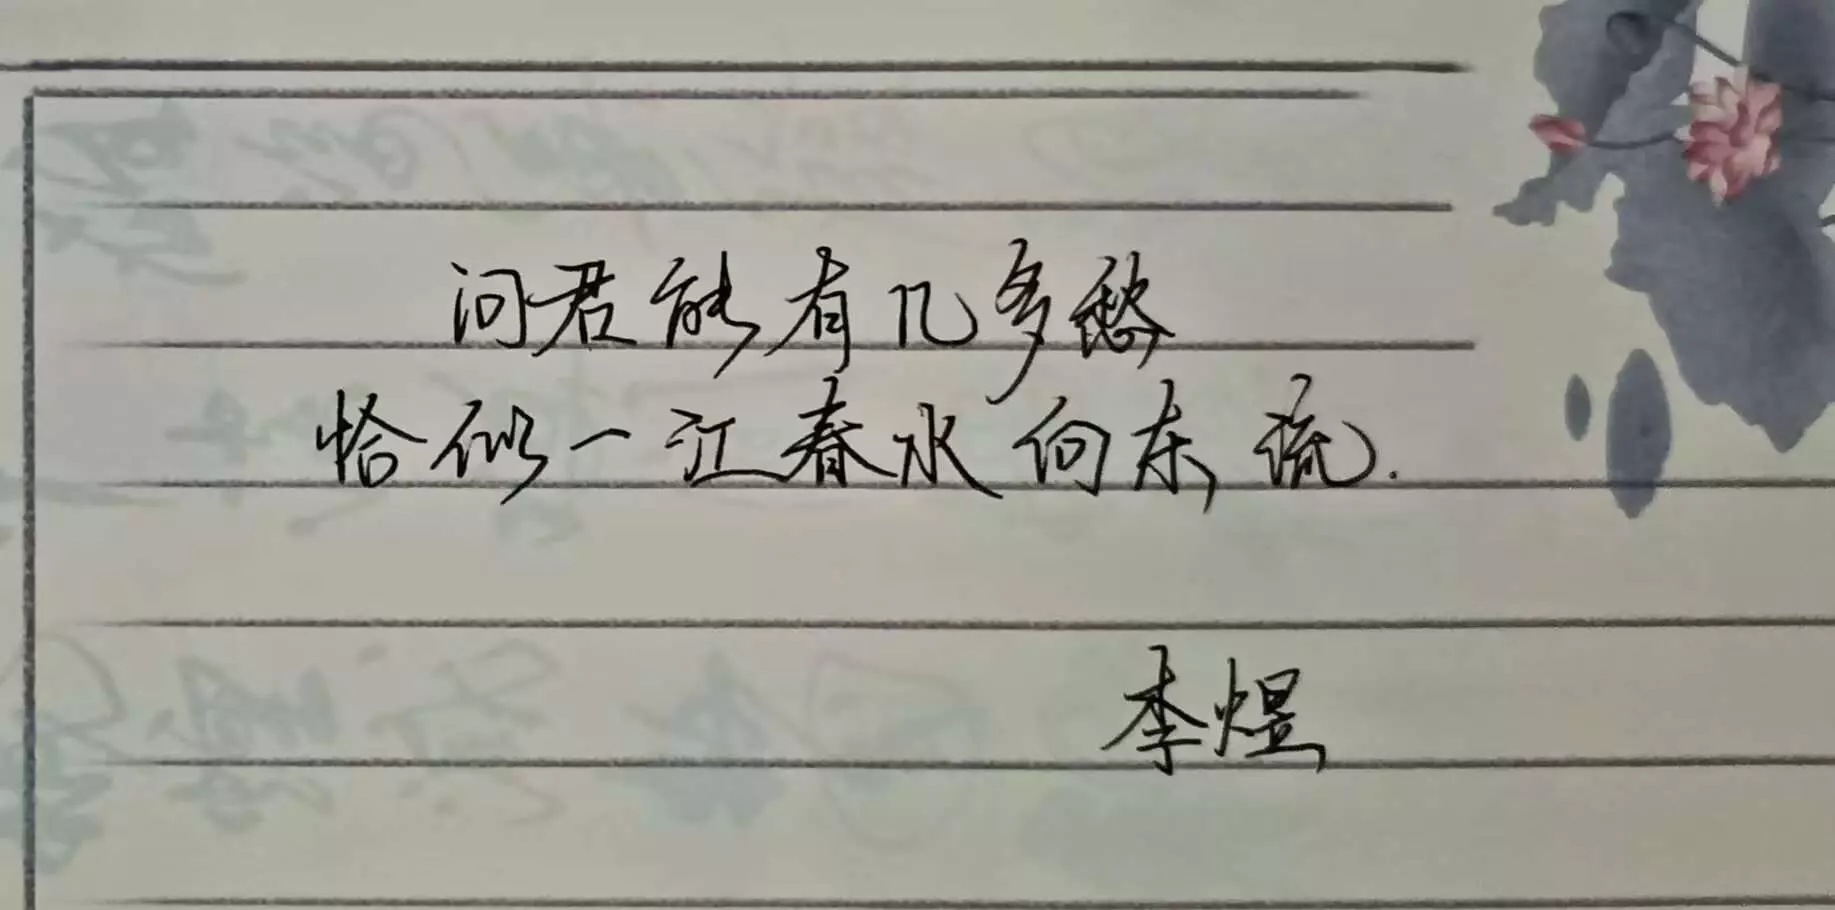 问君能有几多愁
恰似一江春水向东流.
李煜